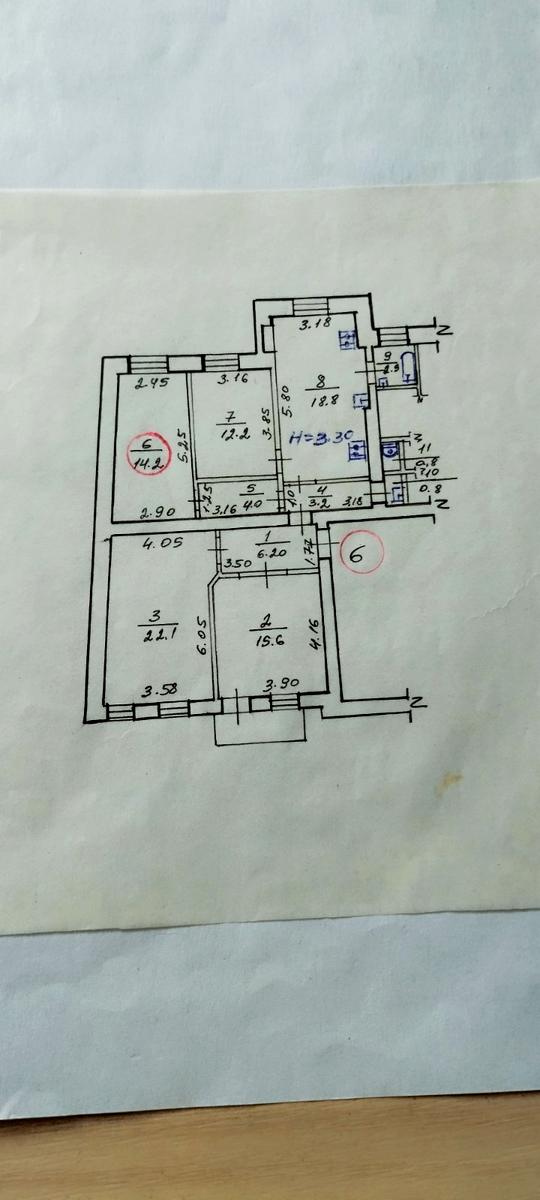 3.18
N
2.45
3.16
9
2.9
8
18.8
5.80
7
12.2
3.85
6
14.2
5.25
H=3.30
11
0.8
10
0.8
N
1.25
5
4.0
3.16
1.0
4
3.2
3.18
2.90
4.05
1
6.20
3.50
1.77
6
3
22.1
6.05
2
15.6
4.16
3.58
3.90
N